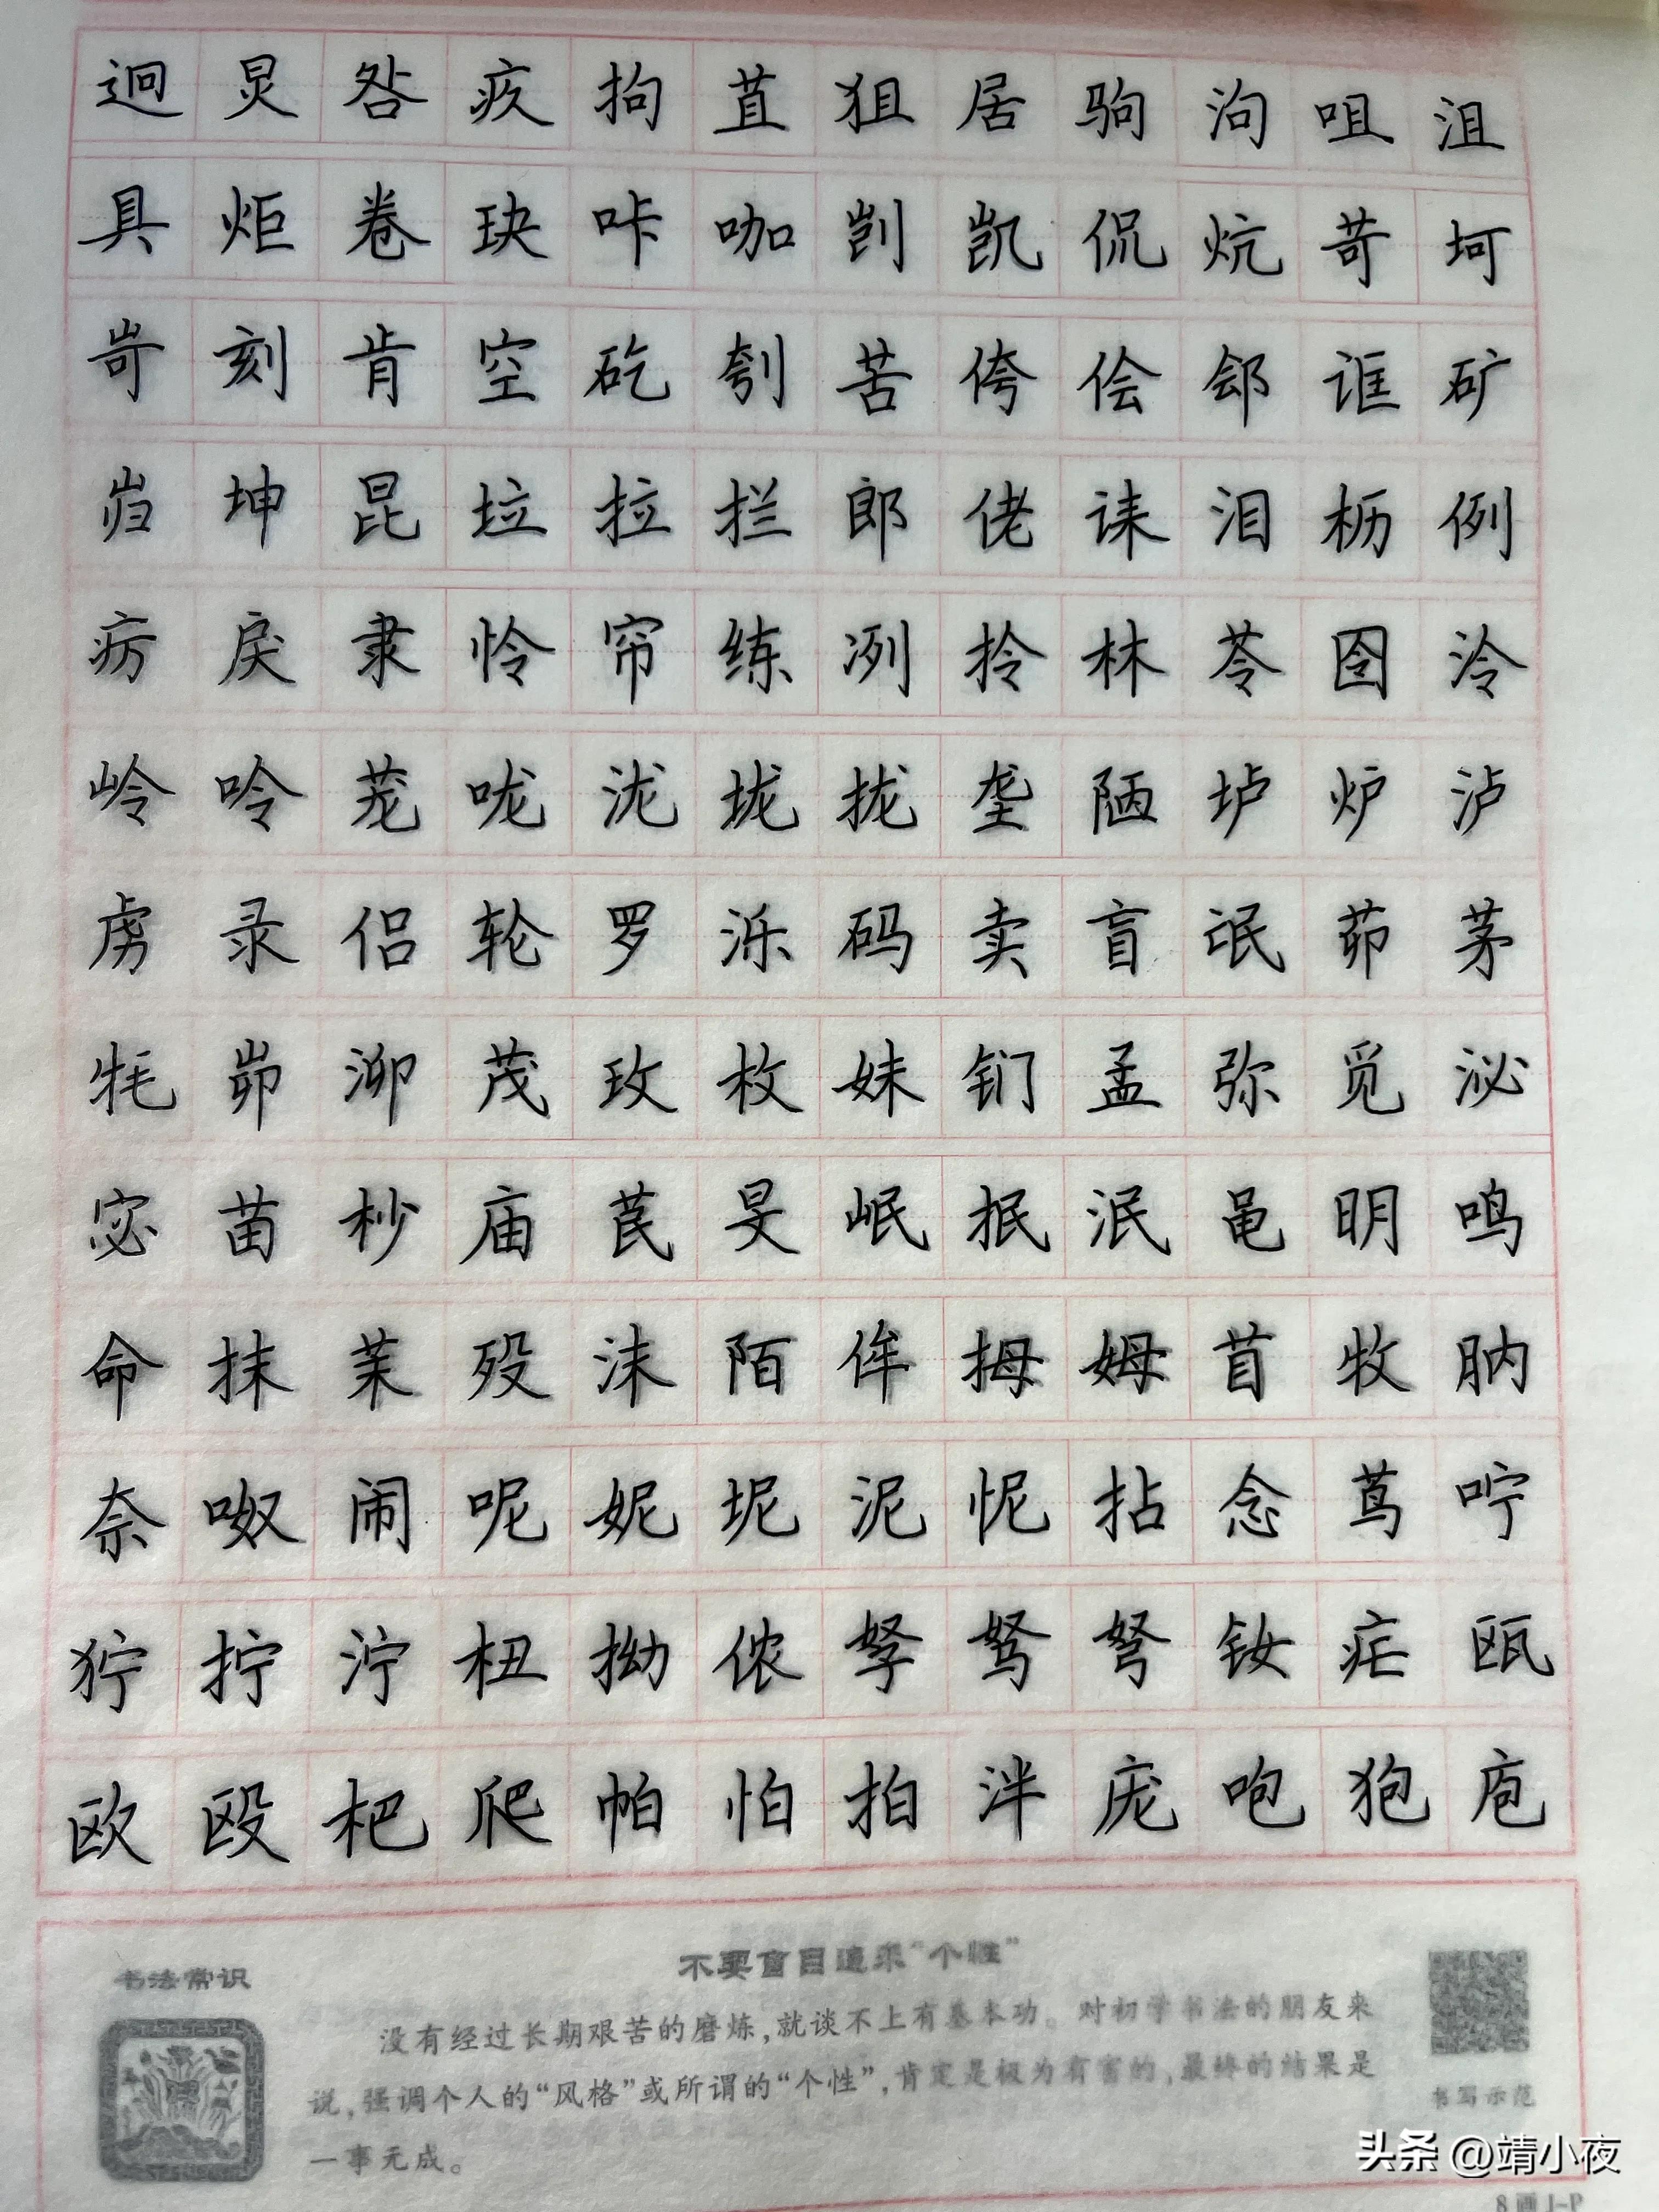 迥炅咎疚拘苴狙居驹泃咀沮
具炬卷玦咔咖剀凯侃炕苛坷
岢刻肯空矻刳苦侉侩郐诓矿
岿坤昆垃拉拦郎佬诔泪枥例
疠戾隶怜帘练冽拎林苓囹泠
岭呤茏咙泷垅拢垄陋垆炉泸
虏录侣轮罗泺码卖盲氓茆茅
牦峁泖茂玫枚妹钔孟弥觅泌
宓苗杪庙苠旻岷抿泯黾明鸣
命抹茉殁沫陌侔拇姆苜牧肭
奈呶闹呢妮坭泥怩拈念茑咛
狞拧泞杻拗侬孥驽弩钕疟瓯
欧殴杷爬帕怕拍泮庞咆狍庖
书法常识
不要盲目追求“个性”
没有经过长期艰苦的磨炼,就谈不上有基本功。对初学书法的朋友来
说,强调个人的“风格”或所谓的“个性”,肯定是极为有害的,最终的结果是
一事无成。
书写示范
头条 @靖小夜
8画 J-P